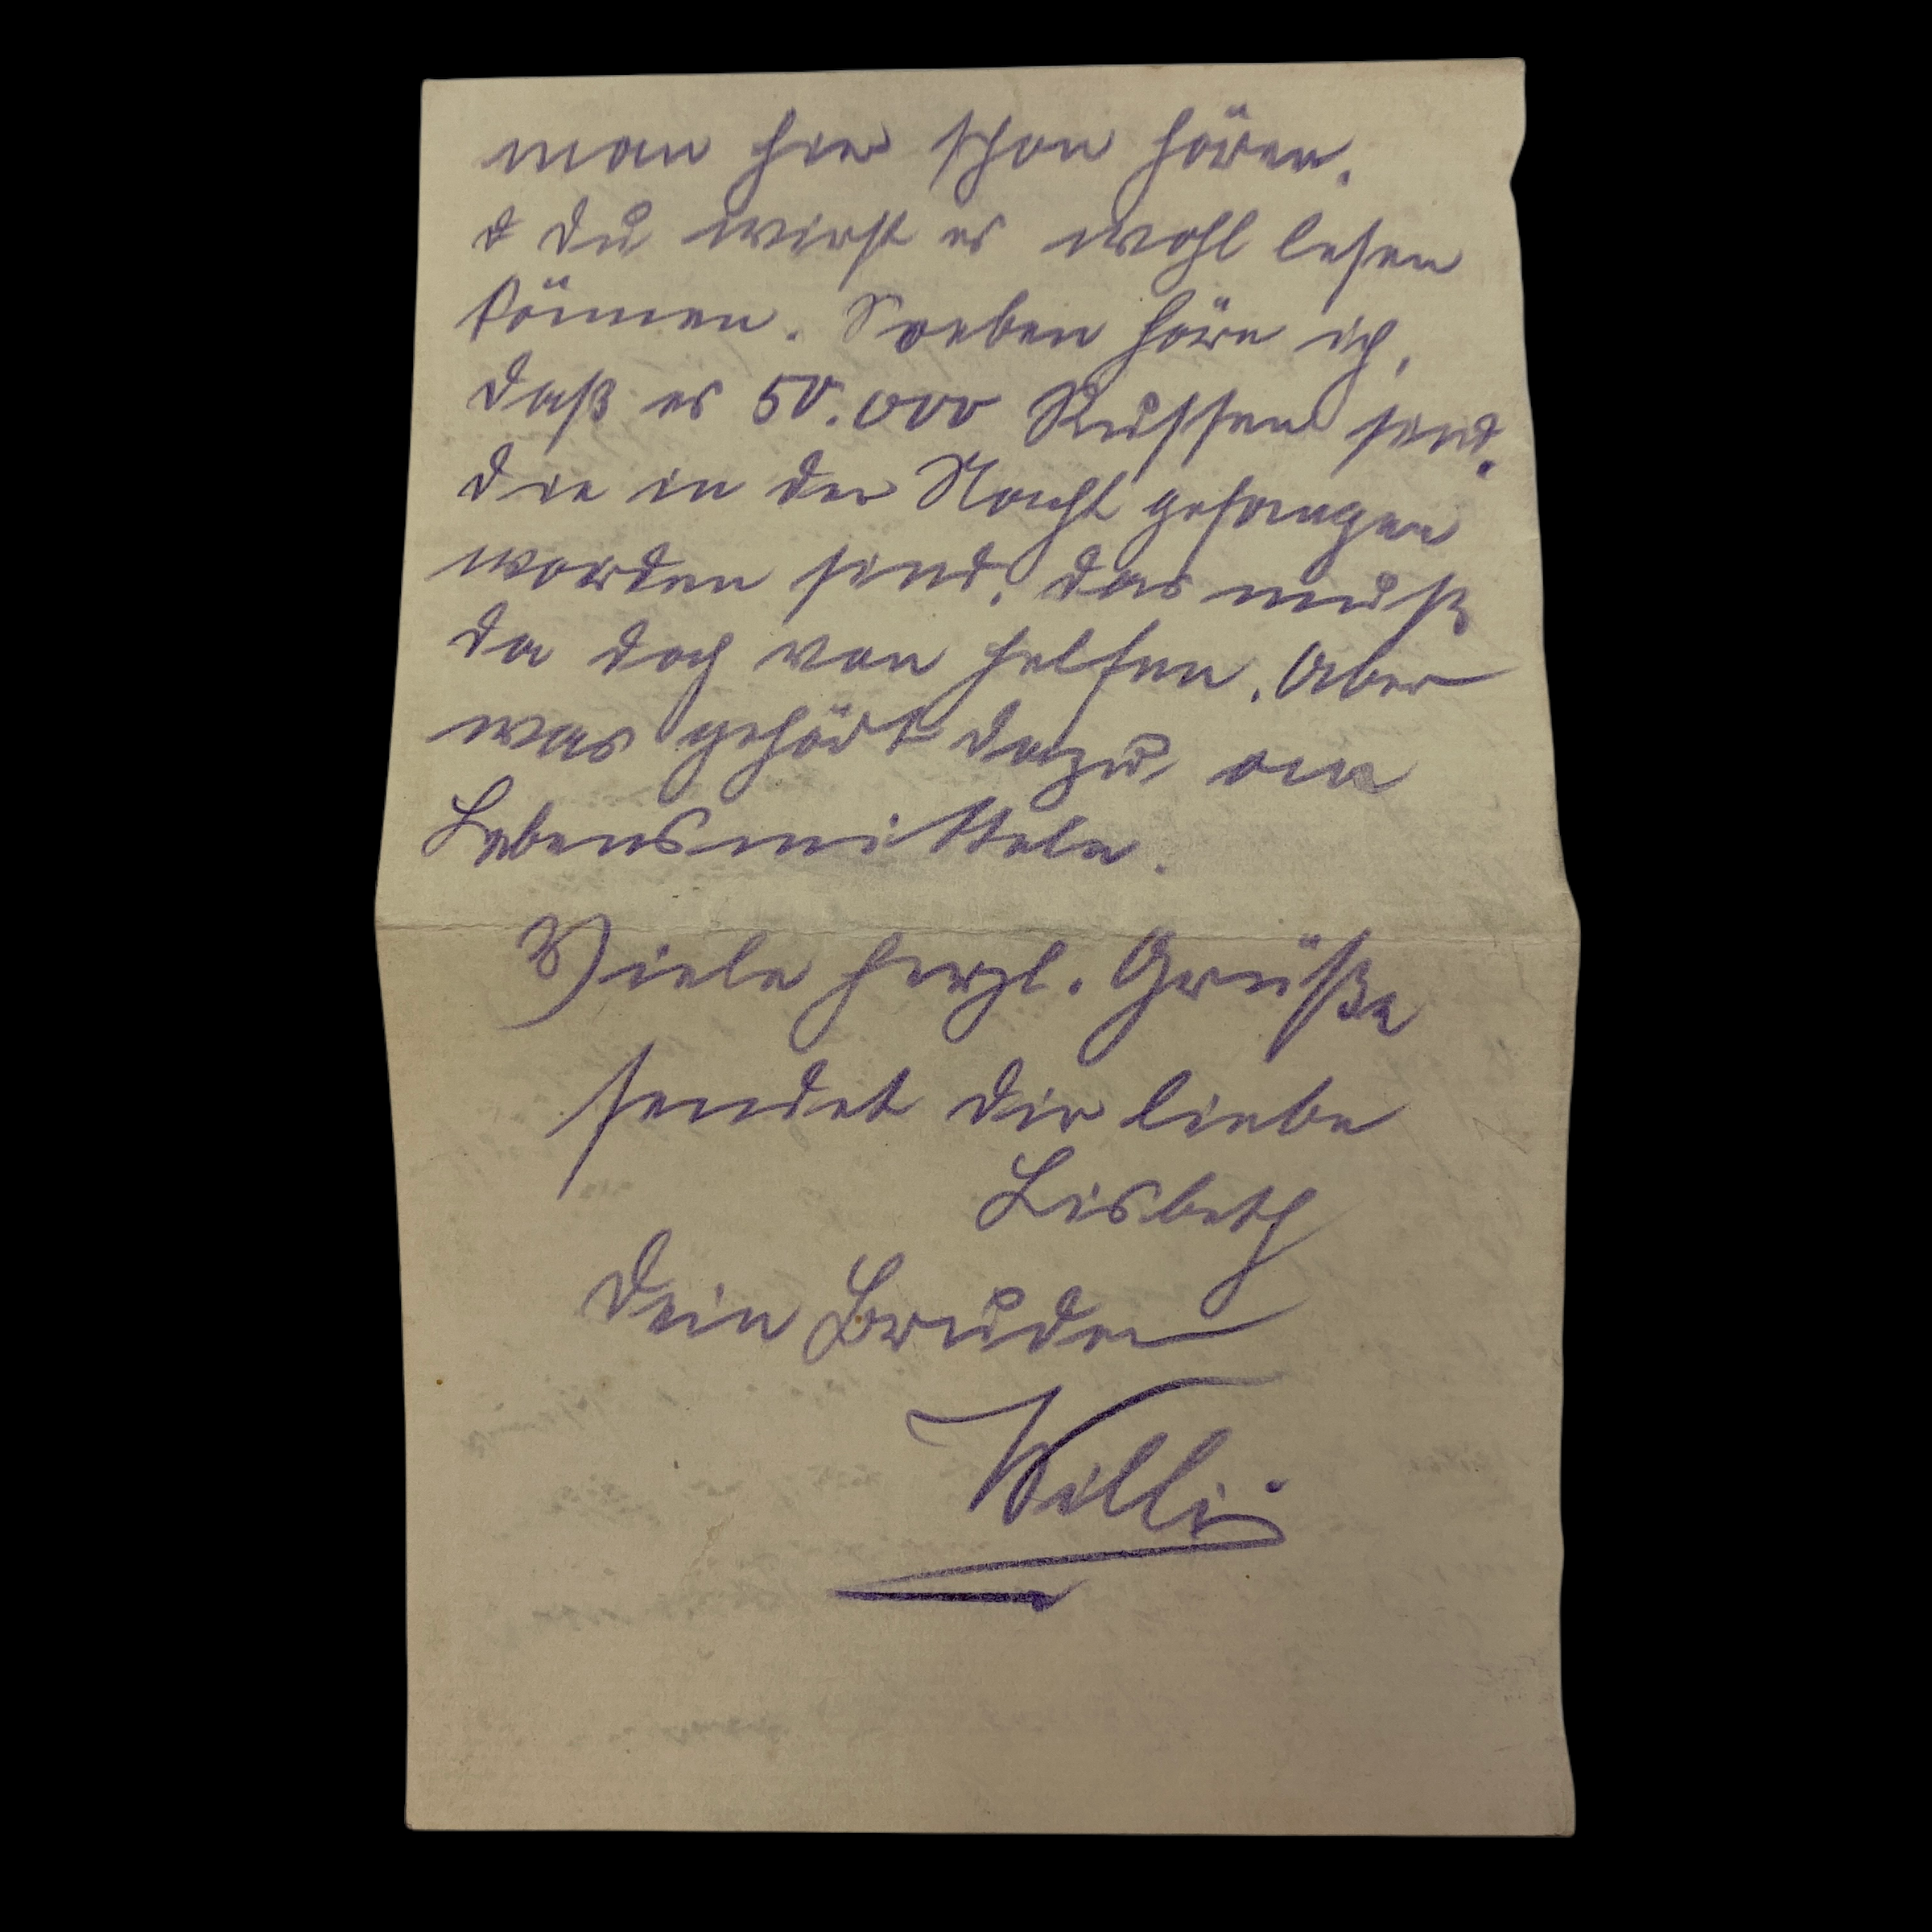 man hier schon hören.
d du wirst es wohl lesen
können. Soeben höre ich,
daß es 50.000 Russen sind,
die in der Nacht gefangen
worden sind, das muß
da doch von helfen. Aber
was gehört dazu, an
Lebensmitteln.
Viele herzl. Grüße
sendet dir liebe
Lisbeth
Dein Bruder
Willi